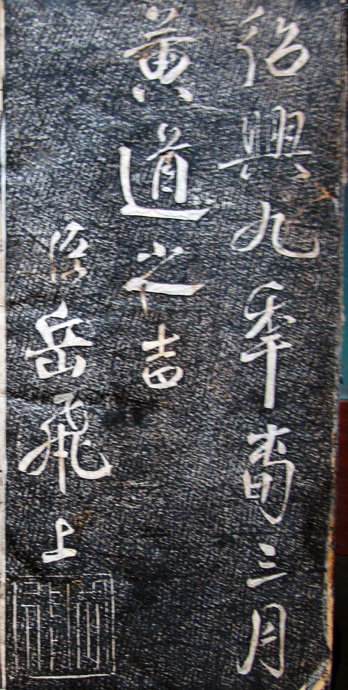 紹興九年春三月
黄道之吉
臣岳飛上